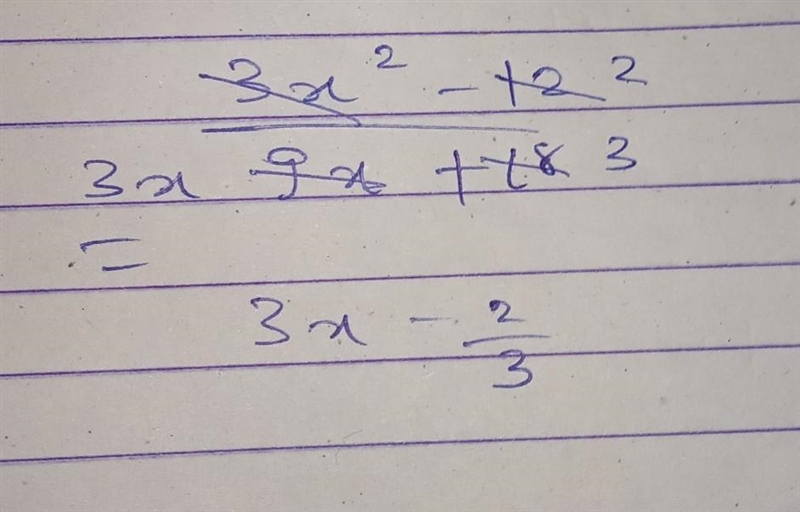 3x² - 12 2
3x 9x + 18 3
=
3x - 2/3